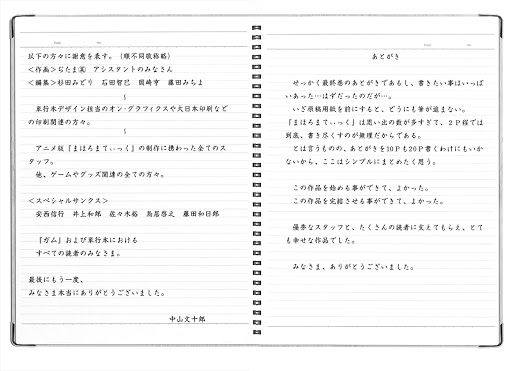 あとがき
せっかく最終巻のあとがきであるし、書きたい事はいっぱ
いあった…はずだったのだが…。
いざ原稿用紙を前にすると、どうにも筆が進まない。
『まほろまてぃっく』は思い出の数が多すぎて、２Ｐ程では
到底、書き尽くすのが無理だからである。
とは言うものの、あとがきを10Ｐも20Ｐ書くわけにもいか
ないから、ここはシンプルにまとめたく思う。
この作品を始める事ができて、よかった。
この作品を完結させる事ができて、よかった。
優秀なスタッフと、たくさんの読者に支えてもらえ、とて
も幸せな作品でした。
みなさま、ありがとうございました。
以下の方々に謝意を表す。（順不同敬称略）
＜作画＞ぢたま アシスタントのみなさん
＜編集＞杉田みどり 石田智巳 岡崎亨 藤田みちよ
～
単行本デザイン担当のオン・グラフィクスや大日本印刷などの
印刷関連の方々。
～
アニメ版『まほろまてぃっく』の制作に携わった全てのス
タッフ。
他、ゲームやグッズ関連の全ての方々。
＜スペシャルサンクス＞
安西信行 井上和郎 佐々木裕 鳥居啓之 藤田和日郎
『ガム』および単行本における
すべての読者のみなさま。
最後にもう一度、
みなさま本当にありがとうございました。
中山文十郎